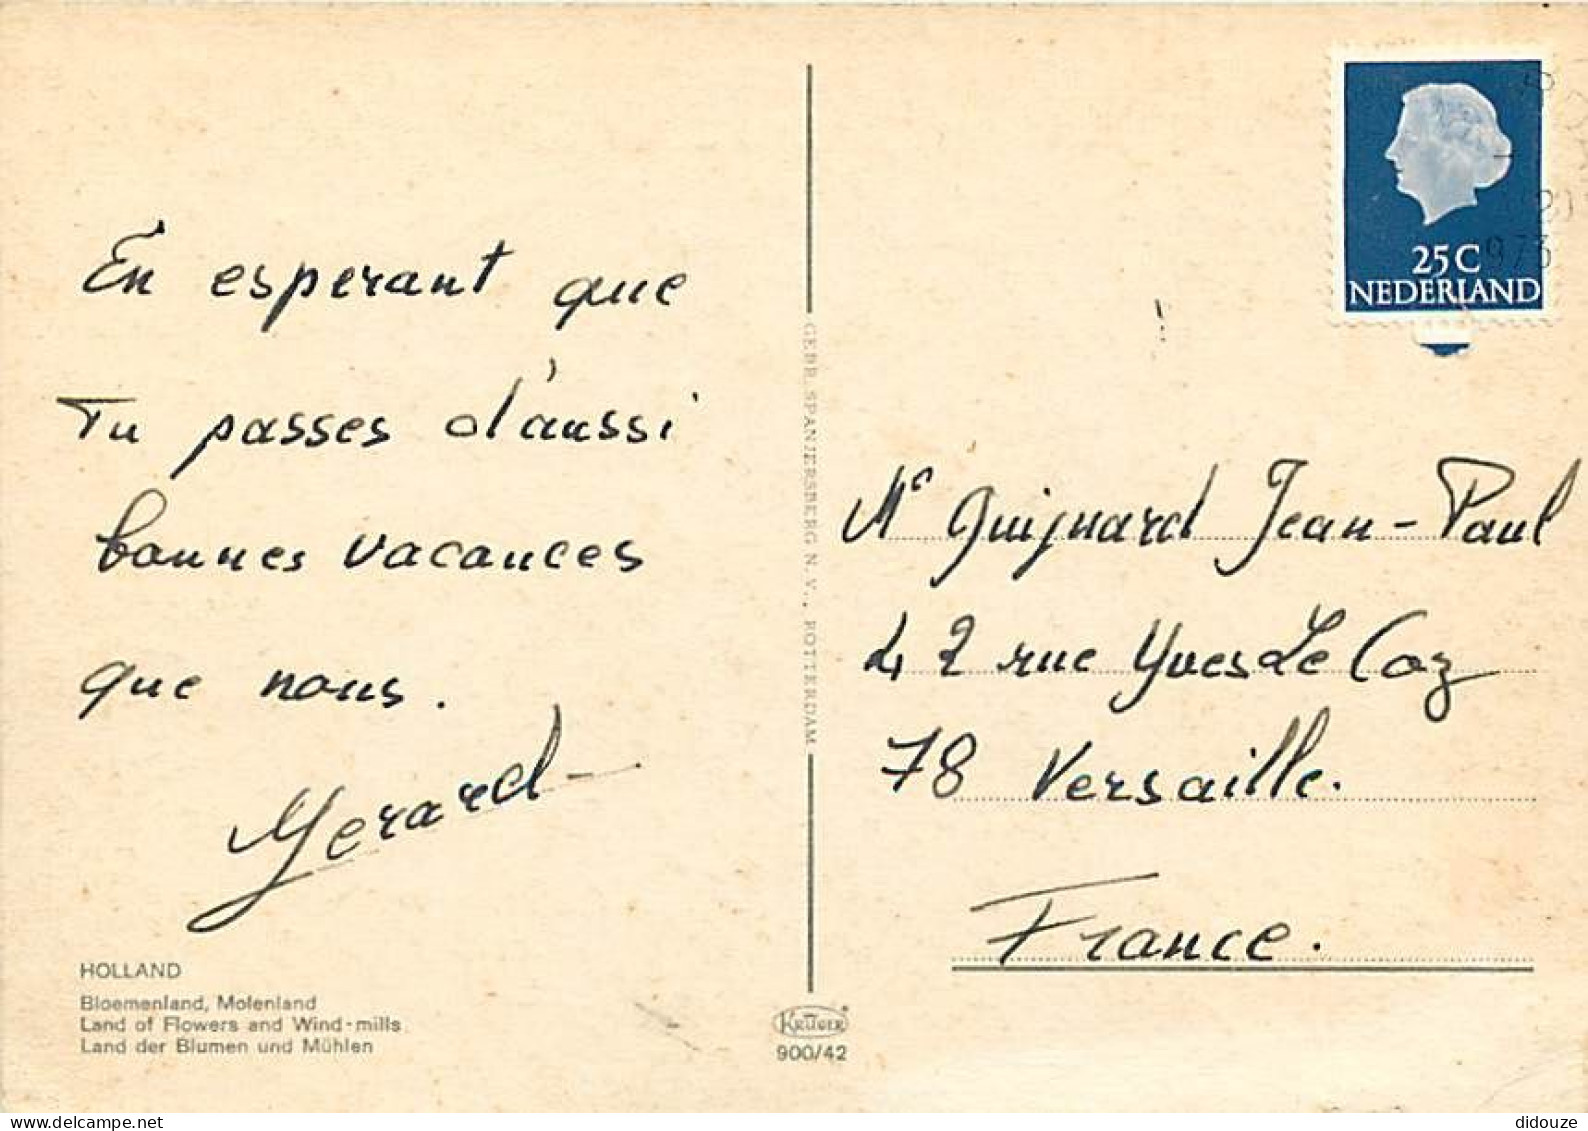 En esperant que
Tu passes d'aussi
bonnes vacances
que nous.
Gerard
HOLLAND
Bloemenland, Molenland
Land of Flowers and Wind-mills
Land der Blumen und Mühlen
GEBR. SPANJERSBERG N.V., ROTTERDAM
KRÜGER
900/42
25C
NEDERLAND
973
Mr Guignard Jean-Paul
42 rue Yves Le Coz
78 Versaille.
France.
didouze